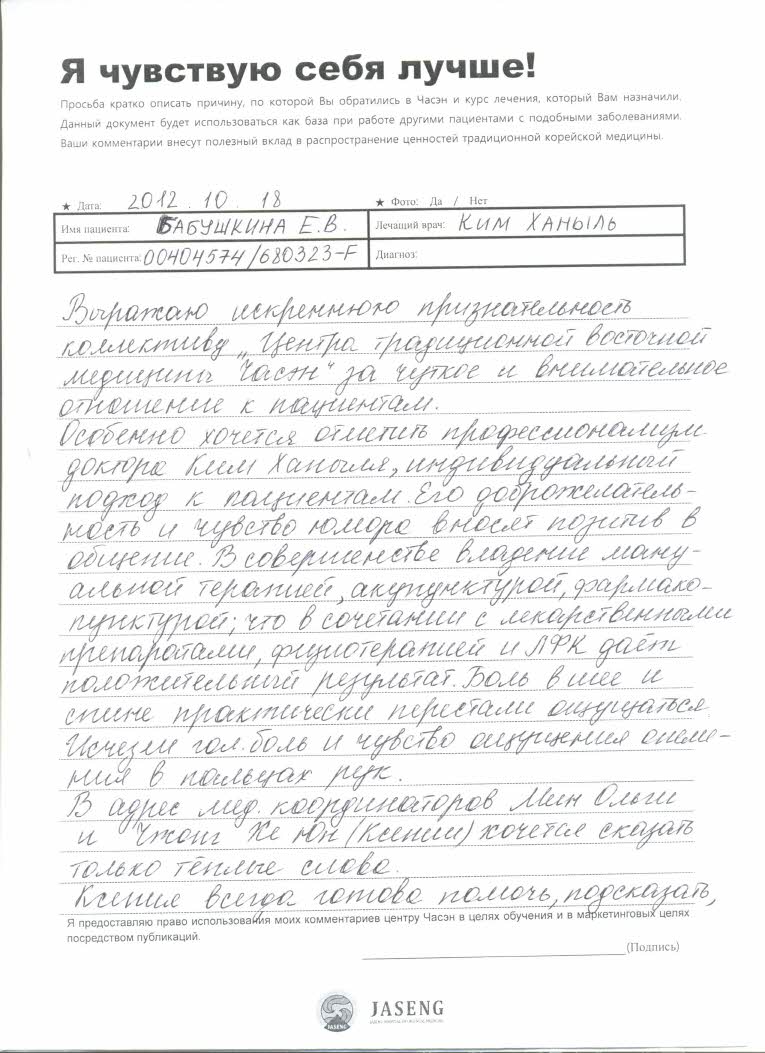 Я чувствую себя лучше!
Просьба кратко описать причину, по которой Вы обратились в Часэн и курс лечения, который Вам назначили.
Данный документ будет использоваться как база при работе другими пациентами с подобными заболеваниями.
Ваши комментарии внесут полезный вклад в распространение ценностей традиционной корейской медицины.
★ Дата: 2012 . 10 . 18 ★ Фото: Да / Нет
Имя пациента: БАБУШКИНА Е.В. Лечащий врач: КИМ ХАНЫЛЬ
Рег. № пациента: 00404574/680323-F Диагноз:
Выражаю искреннюю признательность
коллективу „Центра традиционной восточной
медицины Часэн“ за чуткое и внимательное
отношение к пациентам.
Особенно хочется отметить профессионализм
доктора Ким Ханыля, индивидуальный
подход к пациентам. Его доброжелатель-
ность и чувство юмора вносят позитив в
общение. В совершенстве владение ману-
альной терапией, акупунктурой, фармако-
пунктурой; что в сочетании с лекарственными
препаратами, физиотерапией и ЛФК даёт
положительный результат. Боль в шее и
спине практически перестали ощущаться
Исчезли гол. боль и чувство ощущения онеме-
ния в пальцах рук.
В адрес мед. координаторов Мин Ольги
и Чжонг Хе Юн (Ксении) хочется сказать
только тёплые слова.
Ксения всегда готова помочь, подсказать,
Я предоставляю право использования моих комментариев центру Часэн в целях обучения и в маркетинговых целях
посредством публикаций.
(Подпись)
JASENG
JASENG